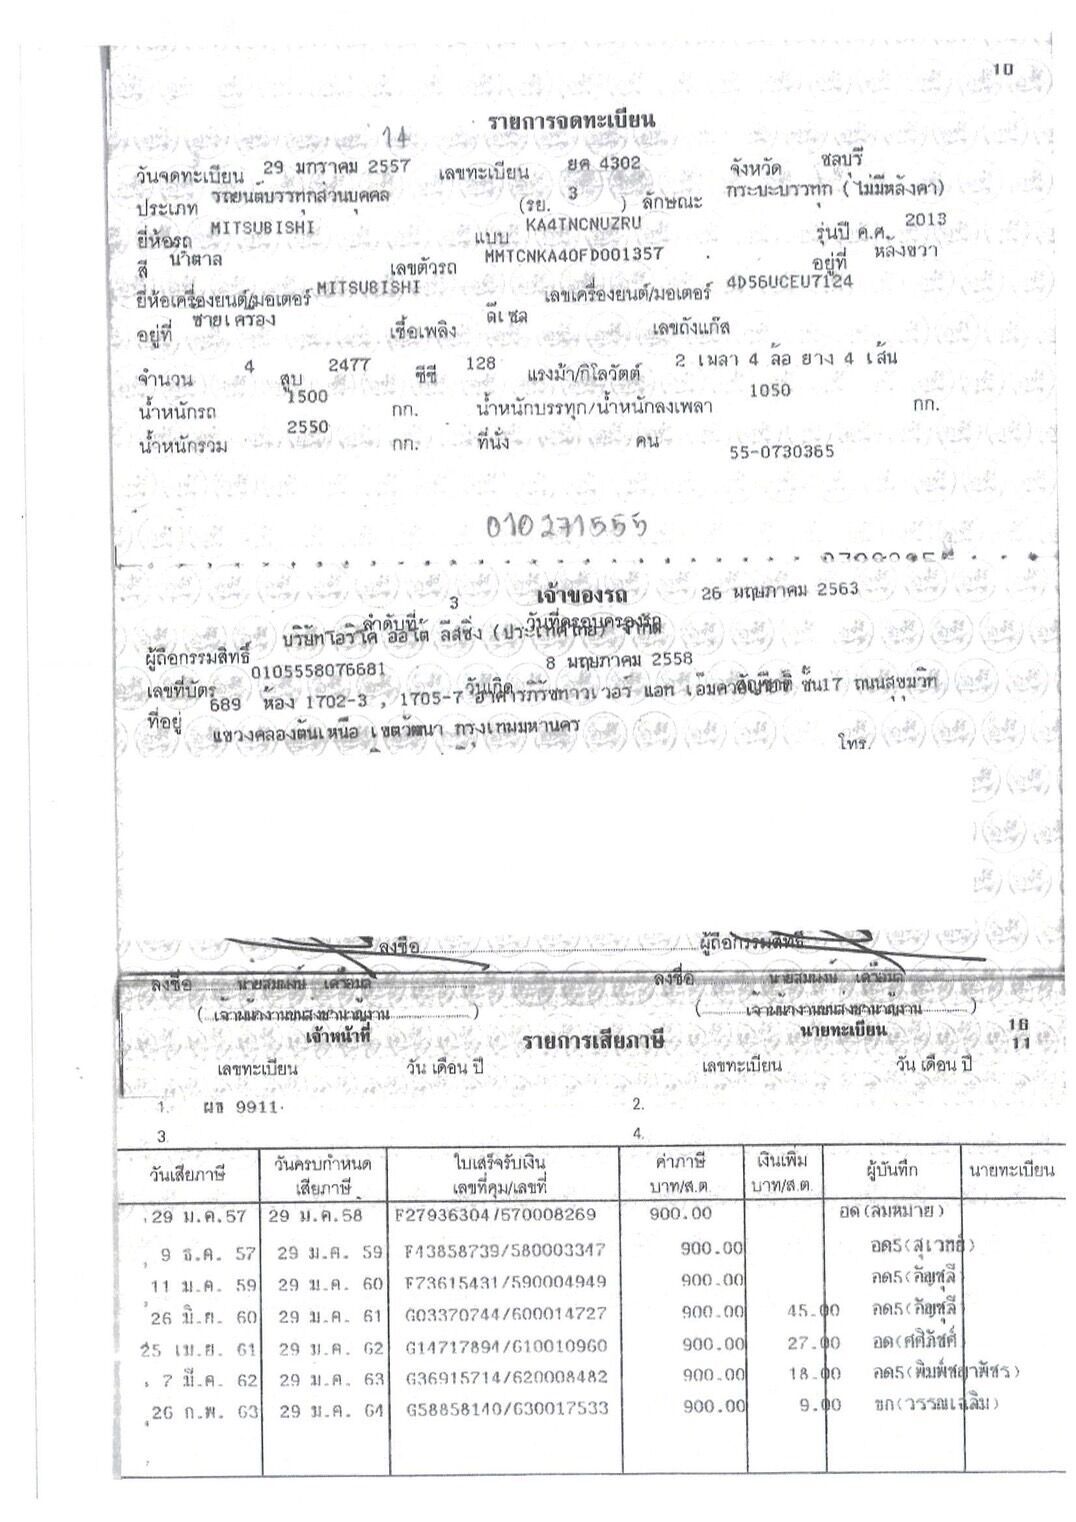 10
รายการจดทะเบียน
14
วันจดทะเบียน 29 มกราคม 2557 เลขทะเบียน ยค 4302 จังหวัด ชลบุรี
ประเภท รถยนต์บรรทุกส่วนบุคคล (รย. 3 ) ลักษณะ กระบะบรรทุก (ไม่มีหลังคา)
ยี่ห้อรถ MITSUBISHI แบบ KA4TNCNUZRU รุ่นปี ค.ศ. 2013
สี น้ำตาล เลขตัวรถ MMTCNKA40FD001357 อยู่ที่ หลังขวา
ยี่ห้อเครื่องยนต์/มอเตอร์ MITSUBISHI เลขเครื่องยนต์/มอเตอร์ 4D56UCEU7124
อยู่ที่ ซ้ายเครื่อง เชื้อเพลิง ดีเซล เลขถังแก๊ส
จำนวน 4 สูบ 2477 ซีซี 128 แรงม้า/กิโลวัตต์ 2 เพลา 4 ล้อ ยาง 4 เส้น
น้ำหนักรถ 1500 กก. น้ำหนักบรรทุก/น้ำหนักลงเพลา 1050 กก.
น้ำหนักรวม 2550 กก. ที่นั่ง คน 55-0730365
010271555
เจ้าของรถ 26 พฤษภาคม 2563
ลำดับที่ 3 วันที่ครอบครองรถ
ผู้ถือกรรมสิทธิ์ บริษัทโอริโค่ ออโต้ ลีสซิ่ง (ประเทศไทย) จำกัด
เลขที่บัตร 0105558076681 วันเกิด 8 พฤษภาคม 2558 สัญชาติ
ที่อยู่ 689 ห้อง 1702-3 , 1705-7 อาคารภิรัชทาวเวอร์ แอท เอ็มควอเทียร์ ชั้น17 ถนนสุขุมวิท
แขวงคลองตันเหนือ เขตวัฒนา กรุงเทพมหานคร
โทร.
ลงชื่อ ผู้ถือกรรมสิทธิ์
ลงชื่อ นายสมพงษ์ เครือมูล ลงชื่อ นายสมพงษ์ เครือมูล
( เจ้าพนักงานขนส่งชำนาญงาน ) ( เจ้าพนักงานขนส่งชำนาญงาน )
เจ้าหน้าที่ นายทะเบียน
รายการเสียภาษี
16
11
เลขทะเบียน วัน เดือน ปี เลขทะเบียน วัน เดือน ปี
1. ผข 9911 2.
3. 4.
วันเสียภาษี วันครบกำหนดเสียภาษี ใบเสร็จรับเงิน เลขที่คุม/เลขที่ ค่าภาษี บาท/ส.ต. เงินเพิ่ม บาท/ส.ต. ผู้บันทึก นายทะเบียน
29 ม.ค.57 29 ม.ค.58 F27936304/570008269 900.00 อด(สมหมาย)
9 ธ.ค. 57 29 ม.ค. 59 F43858739/580003347 900.00 อด5(สุเวทย์)
11 ม.ค. 59 29 ม.ค. 60 F73615431/590004949 900.00 กด5(กัญชุลี
26 มิ.ย. 60 29 ม.ค. 61 G03370744/600014727 900.00 45.00 กด5(กัญชุลี
25 เม.ย. 61 29 ม.ค. 62 G14717894/610010960 900.00 27.00 อด(ศศิภัชศ์
7 มี.ค. 62 29 ม.ค. 63 G36915714/620008482 900.00 18.00 กด5(พิมพ์ชญาพัชร)
26 ก.พ. 63 29 ม.ค. 64 G58858140/630017533 900.00 9.00 ขก(วรรณเฉลิม)